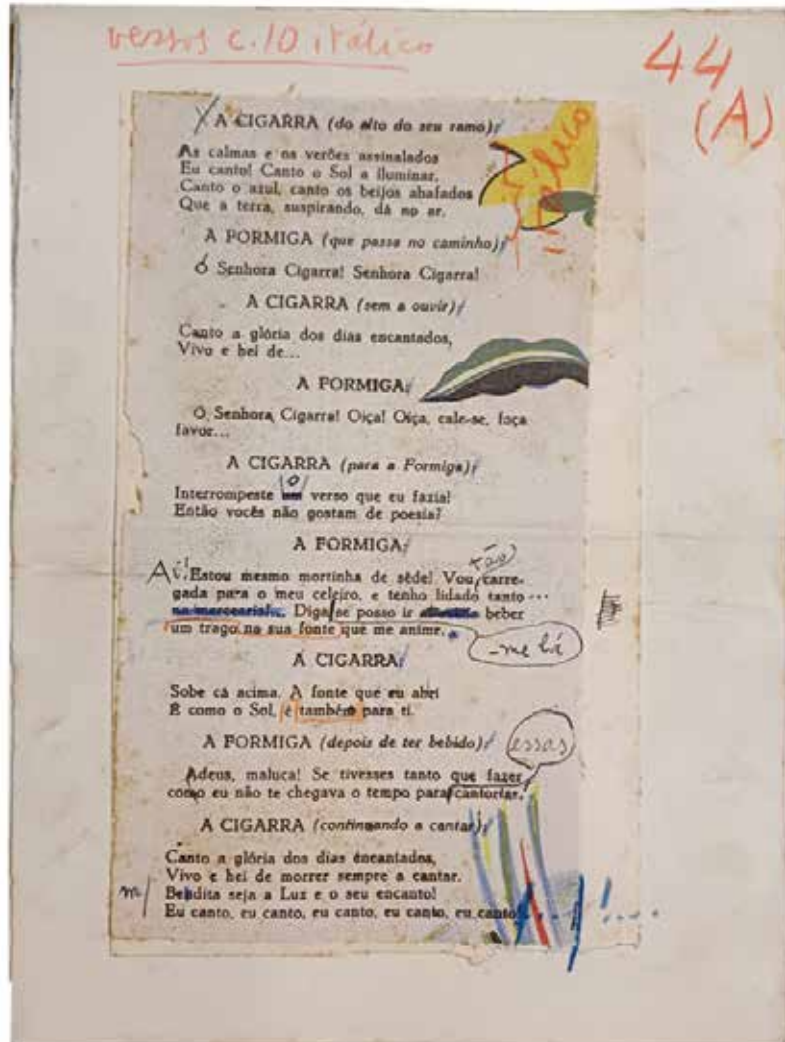 versos c. 10 itálico
44
(A)
A CIGARRA (do alto do seu ramo):
itálico
As calmas e os verões assinalados
Eu canto! Canto o Sol a iluminar,
Canto o azul, canto os beijos abafados
Que a terra, suspirando, dá no ar.
A FORMIGA (que passa no caminho):
Ó Senhora Cigarra! Senhora Cigarra!
A CIGARRA (sem a ouvir):
Canto a glória dos dias encantados,
Vivo e hei de...
A FORMIGA:
Ó Senhora Cigarra! Oiça! Oiça, cale-se, faça
favor...
A CIGARRA (para a Formiga):
o
Interrompeste um verso que eu fazia!
Então vocês não gostam de poesia?
A FORMIGA:
tão
Ai! Estou mesmo mortinha de sêde! Vou carre-
gada para o meu celeiro, e tenho lidado tanto ...
na mercearia!... Diga se posso ir beber
um trago na sua fonte que me anime.
-me lá
A CIGARRA:
Sobe cá acima. A fonte que eu abri
É como o Sol, é também para ti.
A FORMIGA (depois de ter bebido):
essas
Adeus, maluca! Se tivesses tanto que fazer
como eu não te chegava o tempo para cantorias.
A CIGARRA (continuando a cantar):
Canto a glória dos dias encantados,
Vivo e hei de morrer sempre a cantar.
m/ Bendita seja a Luz e o seu encanto!
Eu canto, eu canto, eu canto, eu canto, eu canto...!...